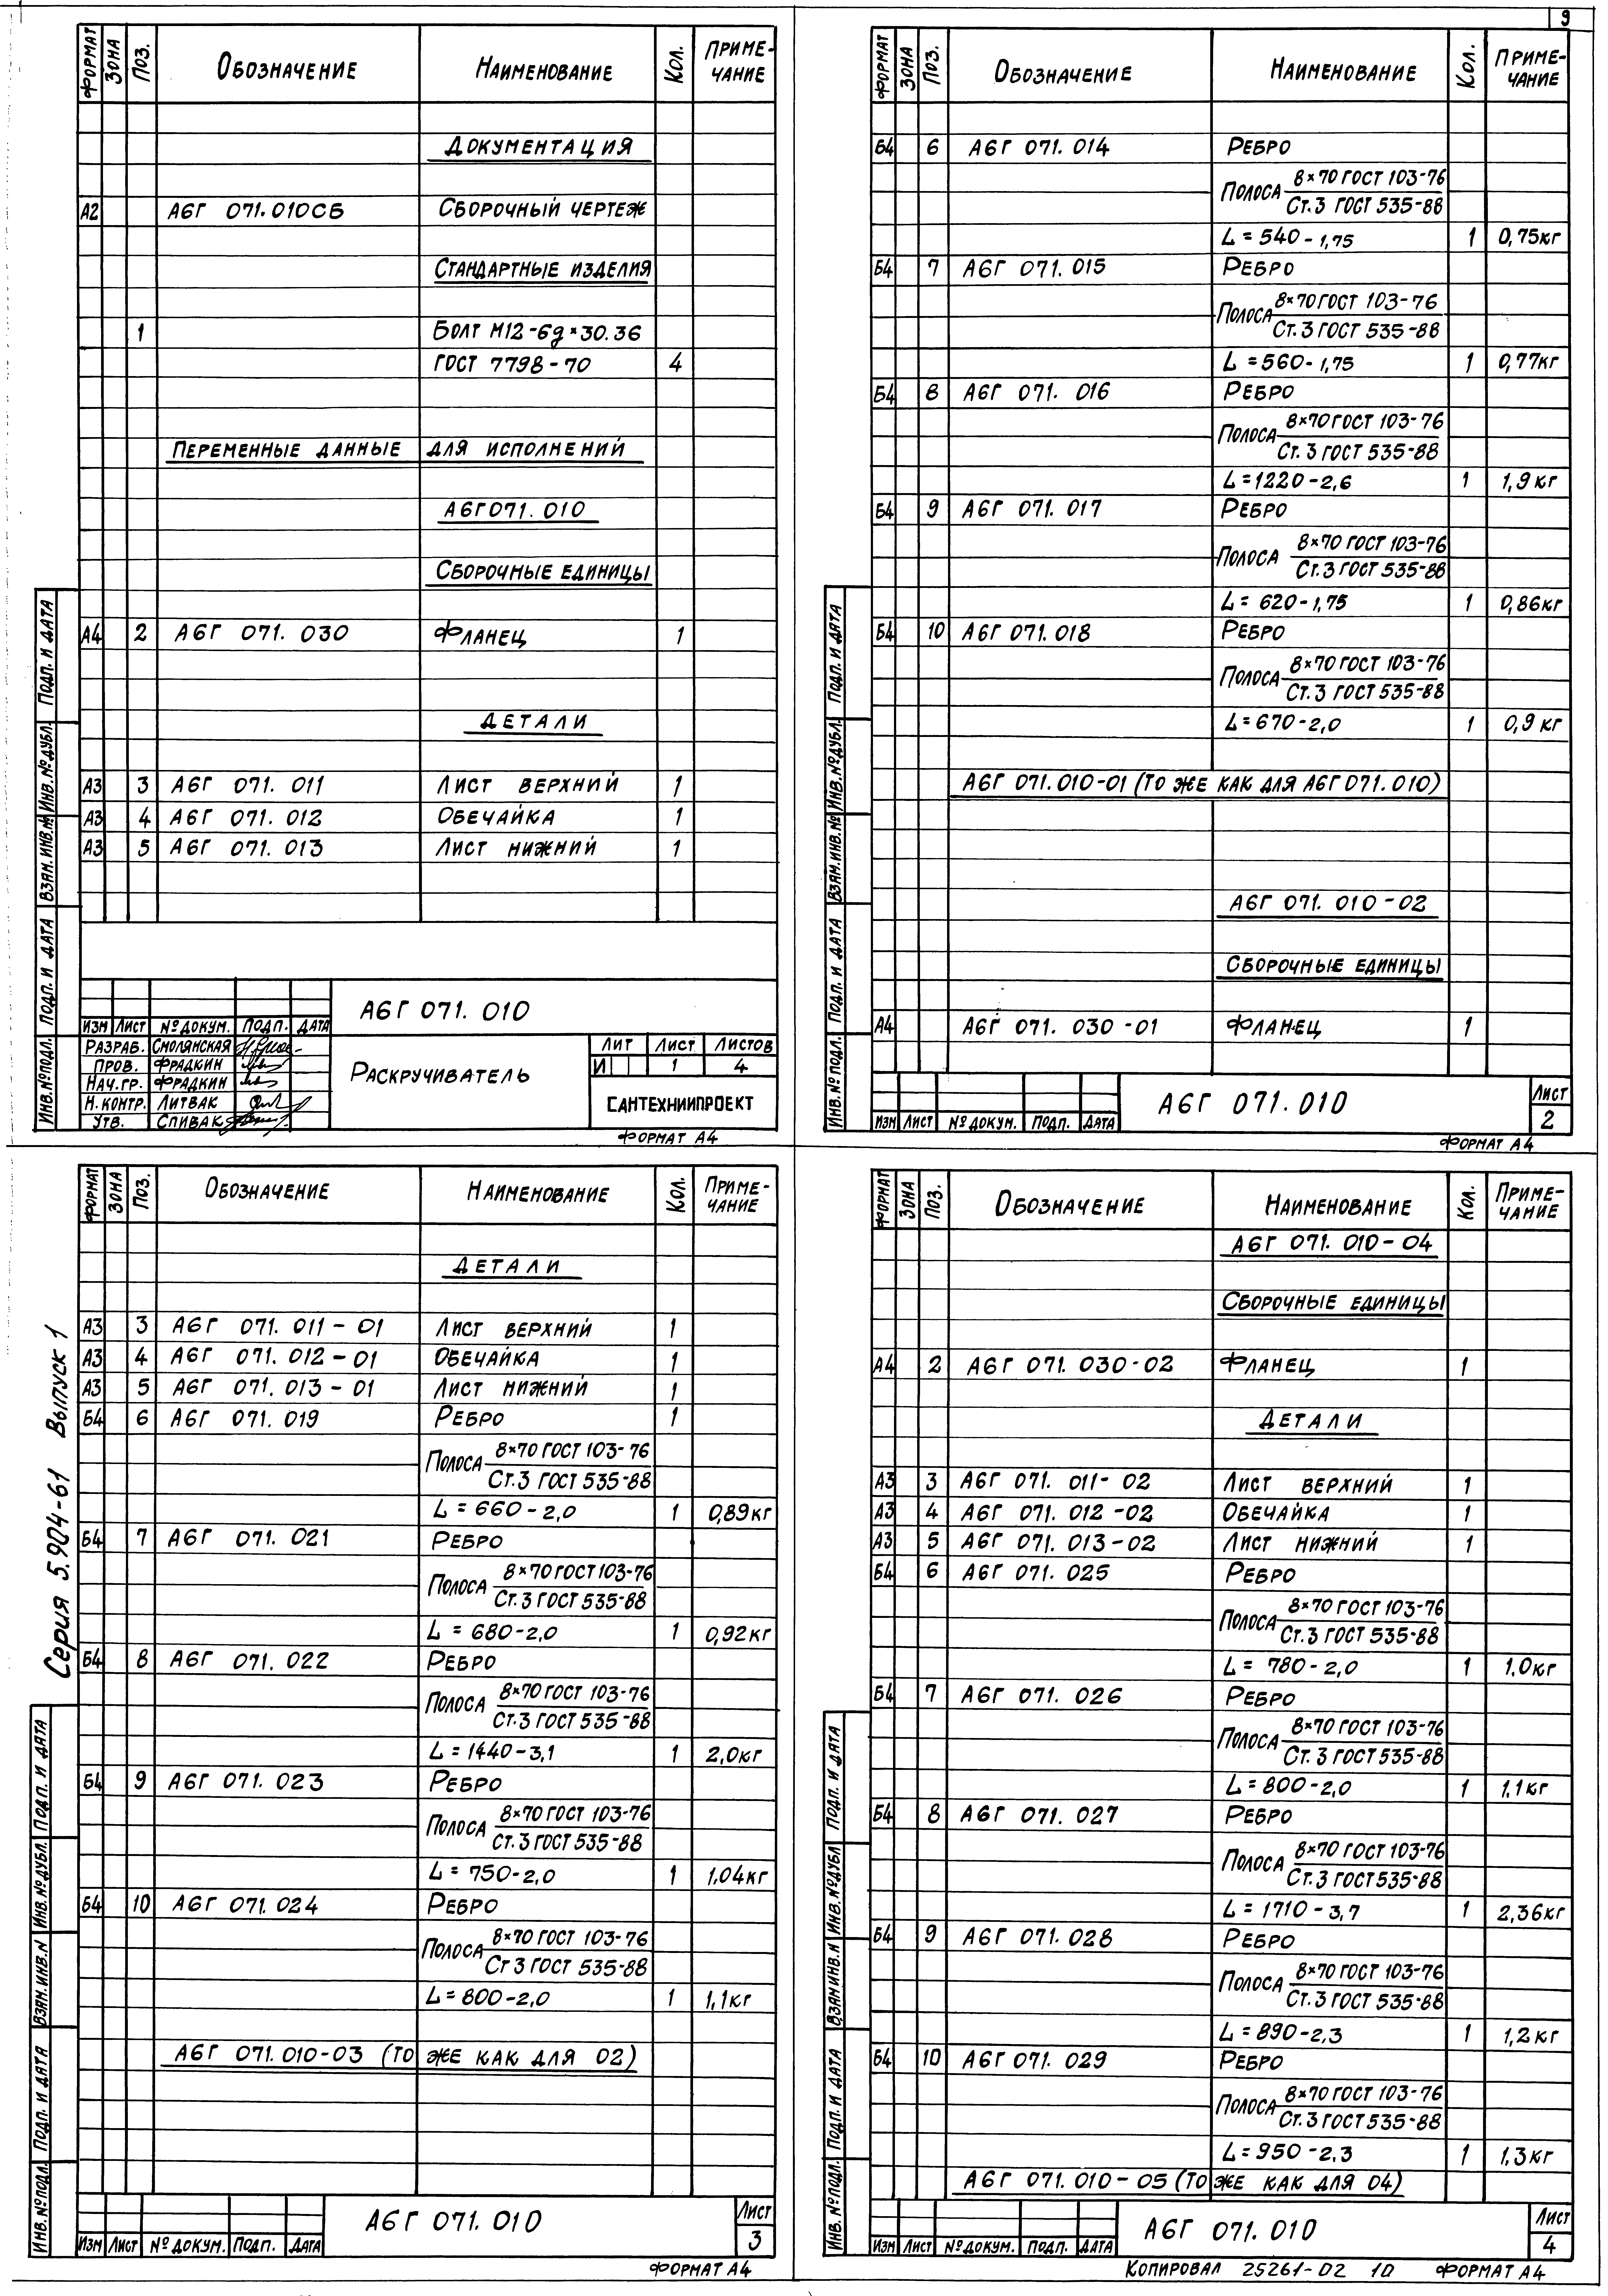 9
ФОРМАТ ЗОНА ПОЗ. ОБОЗНАЧЕНИЕ НАИМЕНОВАНИЕ КОЛ. ПРИМЕ-ЧАНИЕ
ДОКУМЕНТАЦИЯ
А2 А6Г 071.010СБ СБОРОЧНЫЙ ЧЕРТЕЖ
СТАНДАРТНЫЕ ИЗДЕЛИЯ
1 БОЛТ М12-6g×30.36
ГОСТ 7798-70 4
ПЕРЕМЕННЫЕ ДАННЫЕ ДЛЯ ИСПОЛНЕНИЙ
А6Г071.010
СБОРОЧНЫЕ ЕДИНИЦЫ
А4 2 А6Г 071.030 ФЛАНЕЦ 1
ДЕТАЛИ
А3 3 А6Г 071.011 ЛИСТ ВЕРХНИЙ 1
А3 4 А6Г 071.012 ОБЕЧАЙКА 1
А3 5 А6Г 071.013 ЛИСТ НИЖНИЙ 1
ИНВ.№ПОДЛ. ПОДП. И ДАТА ВЗАМ.ИНВ.№ ИНВ.№ДУБЛ. ПОДП. И ДАТА
А6Г 071.010
ИЗМ ЛИСТ №ДОКУМ. ПОДП. ДАТА
РАЗРАБ. СМОЛЯНСКАЯ
ПРОВ. ФРАДКИН
НАЧ.ГР. ФРАДКИН
Н.КОНТР. ЛИТВАК
УТВ. СПИВАК
РАСКРУЧИВАТЕЛЬ
ЛИТ ЛИСТ ЛИСТОВ
И 1 4
САНТЕХНИИПРОЕКТ
ФОРМАТ А4
ФОРМАТ ЗОНА ПОЗ. ОБОЗНАЧЕНИЕ НАИМЕНОВАНИЕ КОЛ. ПРИМЕ-ЧАНИЕ
Б4 6 А6Г 071.014 РЕБРО
8×70 ГОСТ 103-76
ПОЛОСА
Ст.3 ГОСТ 535-88
L=540-1,75 1 0,75кг
Б4 7 А6Г 071.015 РЕБРО
8×70 ГОСТ 103-76
ПОЛОСА
Ст.3 ГОСТ 535-88
L=560-1,75 1 0,77кг
Б4 8 А6Г 071.016 РЕБРО
8×70 ГОСТ 103-76
ПОЛОСА
Ст.3 ГОСТ 535-88
L=1220-2,6 1 1,9кг
Б4 9 А6Г 071.017 РЕБРО
8×70 ГОСТ 103-76
ПОЛОСА
Ст.3 ГОСТ 535-88
L=620-1,75 1 0,86кг
Б4 10 А6Г 071.018 РЕБРО
8×70 ГОСТ 103-76
ПОЛОСА
Ст.3 ГОСТ 535-88
L=670-2,0 1 0,9кг
А6Г 071.010-01 (ТО ЖЕ КАК ДЛЯ А6Г071.010)
А6Г 071.010-02
СБОРОЧНЫЕ ЕДИНИЦЫ
А4 А6Г 071.030-01 ФЛАНЕЦ 1
ИНВ.№ПОДЛ. ПОДП. И ДАТА ВЗАМ.ИНВ.№ ИНВ.№ДУБЛ. ПОДП. И ДАТА
ИЗМ ЛИСТ №ДОКУМ. ПОДП. ДАТА
А6Г 071.010
ЛИСТ
2
ФОРМАТ А4
Серия 5.904-61 Выпуск 1
ФОРМАТ ЗОНА ПОЗ. ОБОЗНАЧЕНИЕ НАИМЕНОВАНИЕ КОЛ. ПРИМЕ-ЧАНИЕ
ДЕТАЛИ
А3 3 А6Г 071.011-01 ЛИСТ ВЕРХНИЙ 1
А3 4 А6Г 071.012-01 ОБЕЧАЙКА 1
А3 5 А6Г 071.013-01 ЛИСТ НИЖНИЙ 1
Б4 6 А6Г 071.019 РЕБРО 1
8×70 ГОСТ 103-76
ПОЛОСА
Ст.3 ГОСТ 535-88
L=660-2,0 1 0,89кг
Б4 7 А6Г 071.021 РЕБРО
8×70 ГОСТ 103-76
ПОЛОСА
Ст.3 ГОСТ 535-88
L=680-2,0 1 0,92кг
Б4 8 А6Г 071.022 РЕБРО
8×70 ГОСТ 103-76
ПОЛОСА
Ст.3 ГОСТ 535-88
L=1440-3,1 1 2,0кг
Б4 9 А6Г 071.023 РЕБРО
8×70 ГОСТ 103-76
ПОЛОСА
Ст.3 ГОСТ 535-88
L=750-2,0 1 1,04кг
Б4 10 А6Г 071.024 РЕБРО
8×70 ГОСТ 103-76
ПОЛОСА
Ст 3 ГОСТ 535-88
L=800-2,0 1 1,1кг
А6Г 071.010-03 (ТО ЖЕ КАК ДЛЯ 02)
ИНВ.№ПОДЛ. ПОДП. И ДАТА ВЗАМ.ИНВ.N ИНВ.№ДУБЛ. ПОДП. И ДАТА
ИЗМ ЛИСТ №ДОКУМ. ПОДП. ДАТА
А6Г 071.010
ЛИСТ
3
ФОРМАТ А4
ФОРМАТ ЗОНА ПОЗ. ОБОЗНАЧЕНИЕ НАИМЕНОВАНИЕ КОЛ. ПРИМЕ-ЧАНИЕ
А6Г 071.010-04
СБОРОЧНЫЕ ЕДИНИЦЫ
А4 2 А6Г 071.030-02 ФЛАНЕЦ 1
ДЕТАЛИ
А3 3 А6Г 071.011-02 ЛИСТ ВЕРХНИЙ 1
А3 4 А6Г 071.012-02 ОБЕЧАЙКА 1
А3 5 А6Г 071.013-02 ЛИСТ НИЖНИЙ 1
Б4 6 А6Г 071.025 РЕБРО
8×70 ГОСТ 103-76
ПОЛОСА
Ст.3 ГОСТ 535-88
L=780-2,0 1 1.0кг
Б4 7 А6Г 071.026 РЕБРО
8×70 ГОСТ 103-76
ПОЛОСА
Ст.3 ГОСТ 535-88
L=800-2,0 1 1.1кг
Б4 8 А6Г 071.027 РЕБРО
8×70 ГОСТ 103-76
ПОЛОСА
Ст.3 ГОСТ 535-88
L=1710-3,7 1 2,36кг
Б4 9 А6Г 071.028 РЕБРО
8×70 ГОСТ 103-76
ПОЛОСА
Ст.3 ГОСТ 535-88
L=890-2.3 1 1,2кг
Б4 10 А6Г 071.029 РЕБРО
8×70 ГОСТ 103-76
ПОЛОСА
Ст.3 ГОСТ 535-88
L=950-2.3 1 1,3кг
А6Г 071.010-05 (ТО ЖЕ КАК ДЛЯ 04)
ИНВ.№ПОДЛ. ПОДП. И ДАТА ВЗАМ.ИНВ.N ИНВ.№ДУБЛ ПОДП. И ДАТА
ИЗМ ЛИСТ №ДОКУМ. ПОДП. ДАТА
А6Г 071.010
ЛИСТ
4
КОПИРОВАЛ 25261-02 10 ФОРМАТ А4